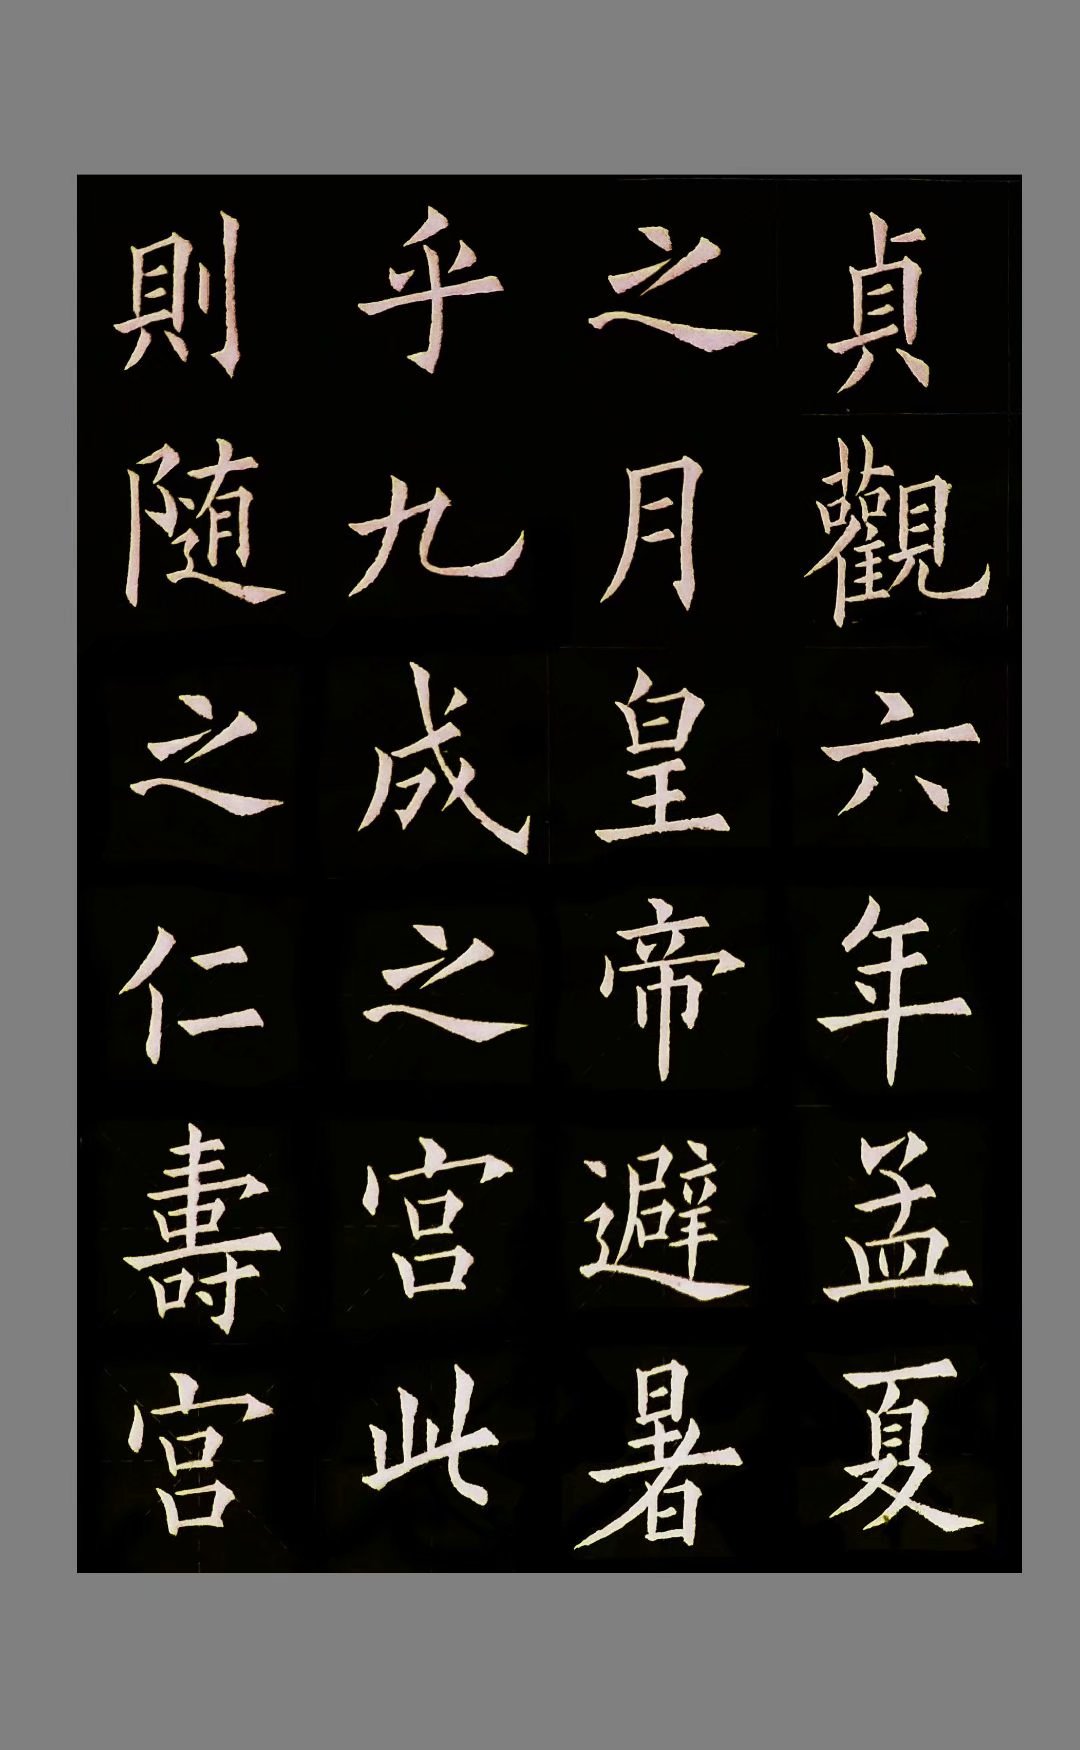 貞觀六年孟夏
之月皇帝避暑
乎九成之宮此
則随之仁壽宮